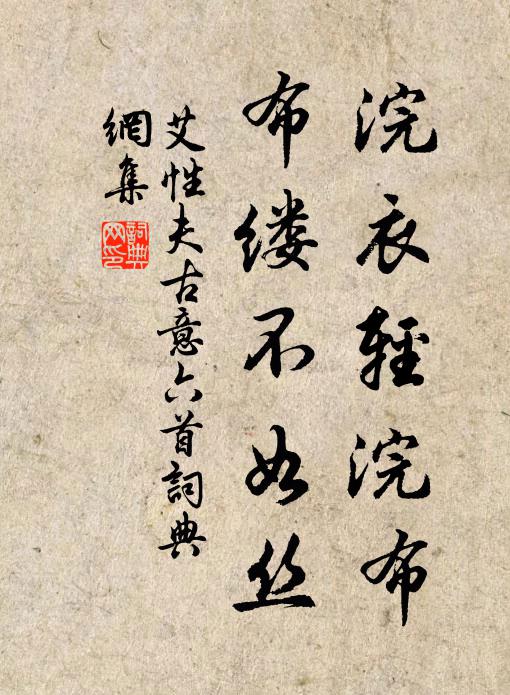 浣衣輕浣布
布缕不如丝
艾性夫古意六首詞典
網集
詞典
网印